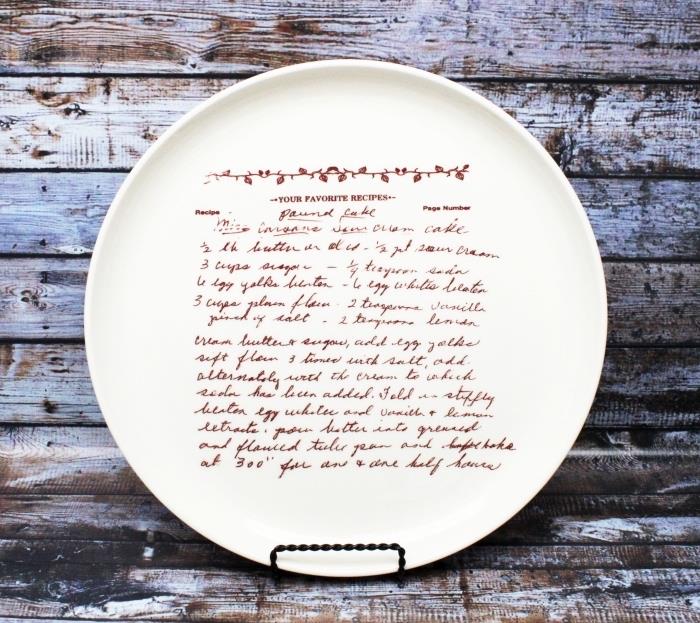 YOUR FAVORITE RECIPES
Recipe pound cake Page Number
Miss sour cream cake
½ lb butter or oleo - ½ pt sour cream
3 cups sugar - ¼ teaspoon soda
6 egg yolks beaten - 6 egg whites beaten
3 cups plain flour - 2 teaspoons vanilla
pinch of salt - 2 teaspoons lemon
cream butter & sugar, add egg yolks
sift flour 3 times with salt, add
alternately with the cream to which
soda has been added. Fold in stiffly
beaten egg whites and vanilla & lemon
extracts. pour batter into greased
and floured tube pan and bake
at 300° for one & one half hours